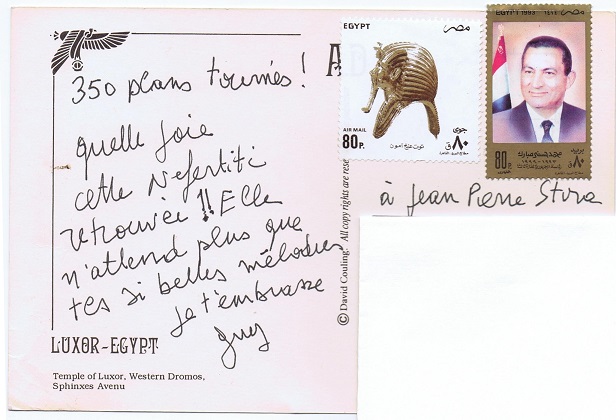 350 plans tournés !
quelle joie
cette Nefertiti
retrouvée !! Elle
n'attend plus que
tes si belles mélodies
je t'embrasse
guy
LUXOR-EGYPT
Temple of Luxor, Western Dromos,
Sphinxes Avenu
© David Couling. All copy rights are rese
A
EGYPT
مصر
AIR MAIL
80P.
جوى
٨٠ ق
توت عنخ آمون
EGYPT 1993
مصر
80P.
بريد
٨٠ ق
محمد حسنى مبارك
à Jean Pierre Stora